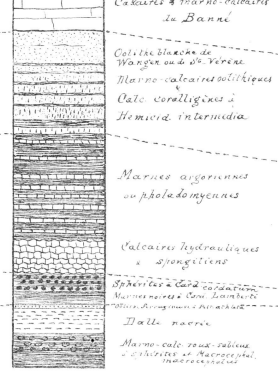 Calcaires & marno-calcaires
du Banné
Oolithe blanche de
Wangen ou de Ste Vérène
Marno-calcaires oolithiques
&
Calc. coralligènes à
Hemicid. intermedia
Marnes argoviennes
ou pholadomyennes
Calcaires hydrauliques
à spongitiens
Sphérites à Card. cordatum
Marnes noires à Cosm. Lamberti
Dalle nacrée
Marno-calc. roux-sableux
à sphérites et Macrocephal.
macrocephalus